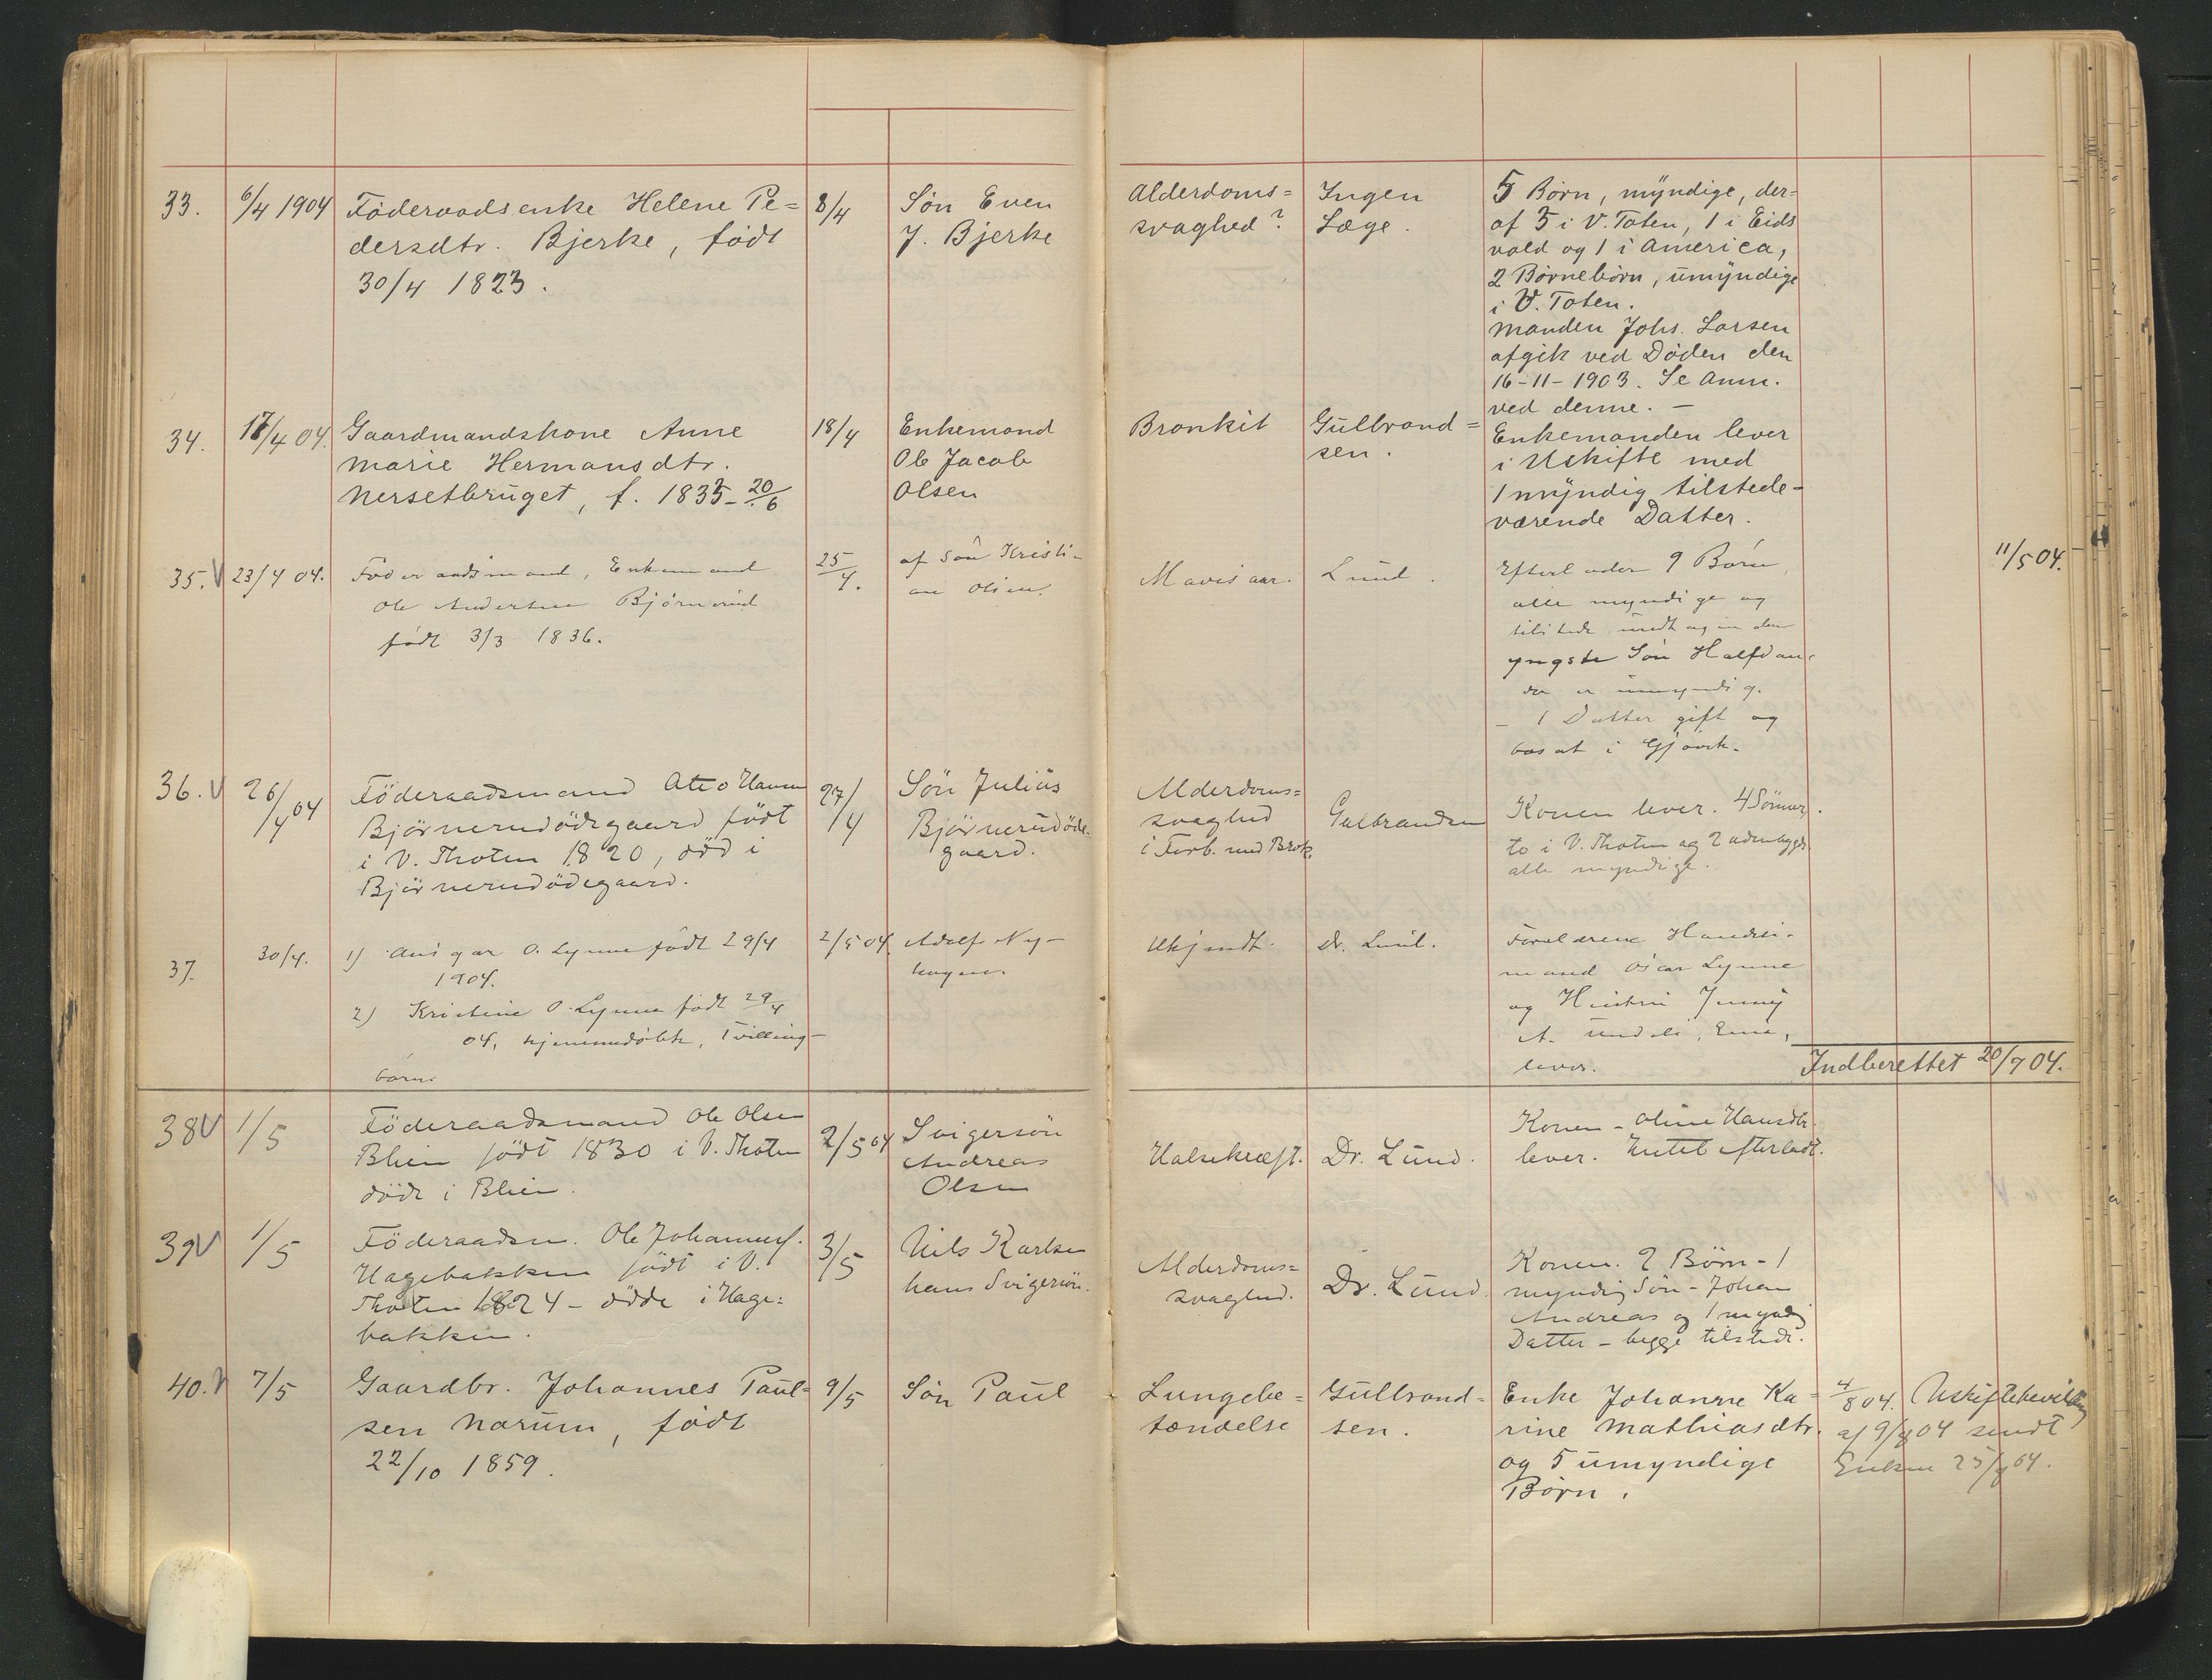 33.
6/4 1904
Föderaadsenke Helene Pe=
dersdtr. Bjerke, født
30/4 1823.
8/4
Søn Even
J. Bjerke
Alderdoms=
svaghed?
Ingen
Læge.
5 Børn, myndige, der=
af 3 i V. Toten, 1 i Eids
vold og 1 i America,
2 Børnebørn, umyndige
i V. Toten.
Manden Johs. Larsen
afgik ved Døden den
16-11-1903. Se Anm.
ved denne. —
34.
17/4 04.
Gaardmandskone Anne
Marie Hermansdtr.
Nersetbruget, f. 1835 - 20/6
18/4
Enkemand
Ole Jacob
Olsen
Bronkit
Gulbrand=
sen.
Enkemanden lever
i Uskifte med
1 myndig tilstede-
værende Datter.
35. V
23/4 04.
Föderaadsmand, Enkemand
Ole Andersen Björnerud
født 3/3 1836.
25/4.
af Søn Kristi-
an Olsen.
Lund.
Efterlader 9 Børn,
alle myndige og
tilstede undtagen den
yngste Søn Halfdan
der er umyndig.
- 1 Datter gift og
bosat i Gjøvik.
11/5 04.
36. V
26/4 04
Föderaadsmand
Björnerudödegaard født
i V. Thoten 1820, död i
Björnerudödegaard.
27/4
Sön Julius
Björnerudöde-
gaard.
Alderdoms=
svaghed
i Forb. med Brok.
Gulbrandsen
Konen lever. 4 Sönner,
to i V. Thoten og 2 udenbygds
alle myndige.
37.
30/4.
1) Ansgar O. Lynne født 29/4
1904.
2) Kristine O. Lynne født 29/4
04, hjemmedøbte, Tvilling-
børn.
2/5 04
Adolf Ny-
hagen.
Ukjendt.
Dr. Lund.
Forældrene Handels-
mand Oscar Lynne
og Hustru Jenny
lever.
Indberettet 20/7 04.
38 V
1/5
Föderaadsmand Ole Olsen
Blien födt 1830 i V. Thoten
döde i Blien.
2/5 04
Svigersön
Andreas
Olsen
Halsekræft.
Dr. Lund.
Konen - Oline Hansdtr.
lever. Intet efterladt.
39 V
1/5
Föderaadsm. Ole Johannes.
Hagebakken födt i V.
Thoten 1824 - döde i Hage=
bakken.
3/5
Nils Karlsen
hans Svigersön.
Alderdoms=
svaghed.
Dr. Lund.
Konen. 2 Börn - 1
myndig Sön - Johan
Andreas og 1 myndig
Datter - begge tilstede.
40. V
7/5
Gaardbr. Johannes Paul=
sen Narum, født
22/10 1859.
9/5
Søn Paul
Lungebe=
tændelse
Gulbrand=
sen.
Enke Johanne Ka=
rine Mathiasdtr.
og 5 umyndige
Børn.
4/8 04. Uskiftebevilling
af 9/8 04 sendt
Enken 25/8 04.